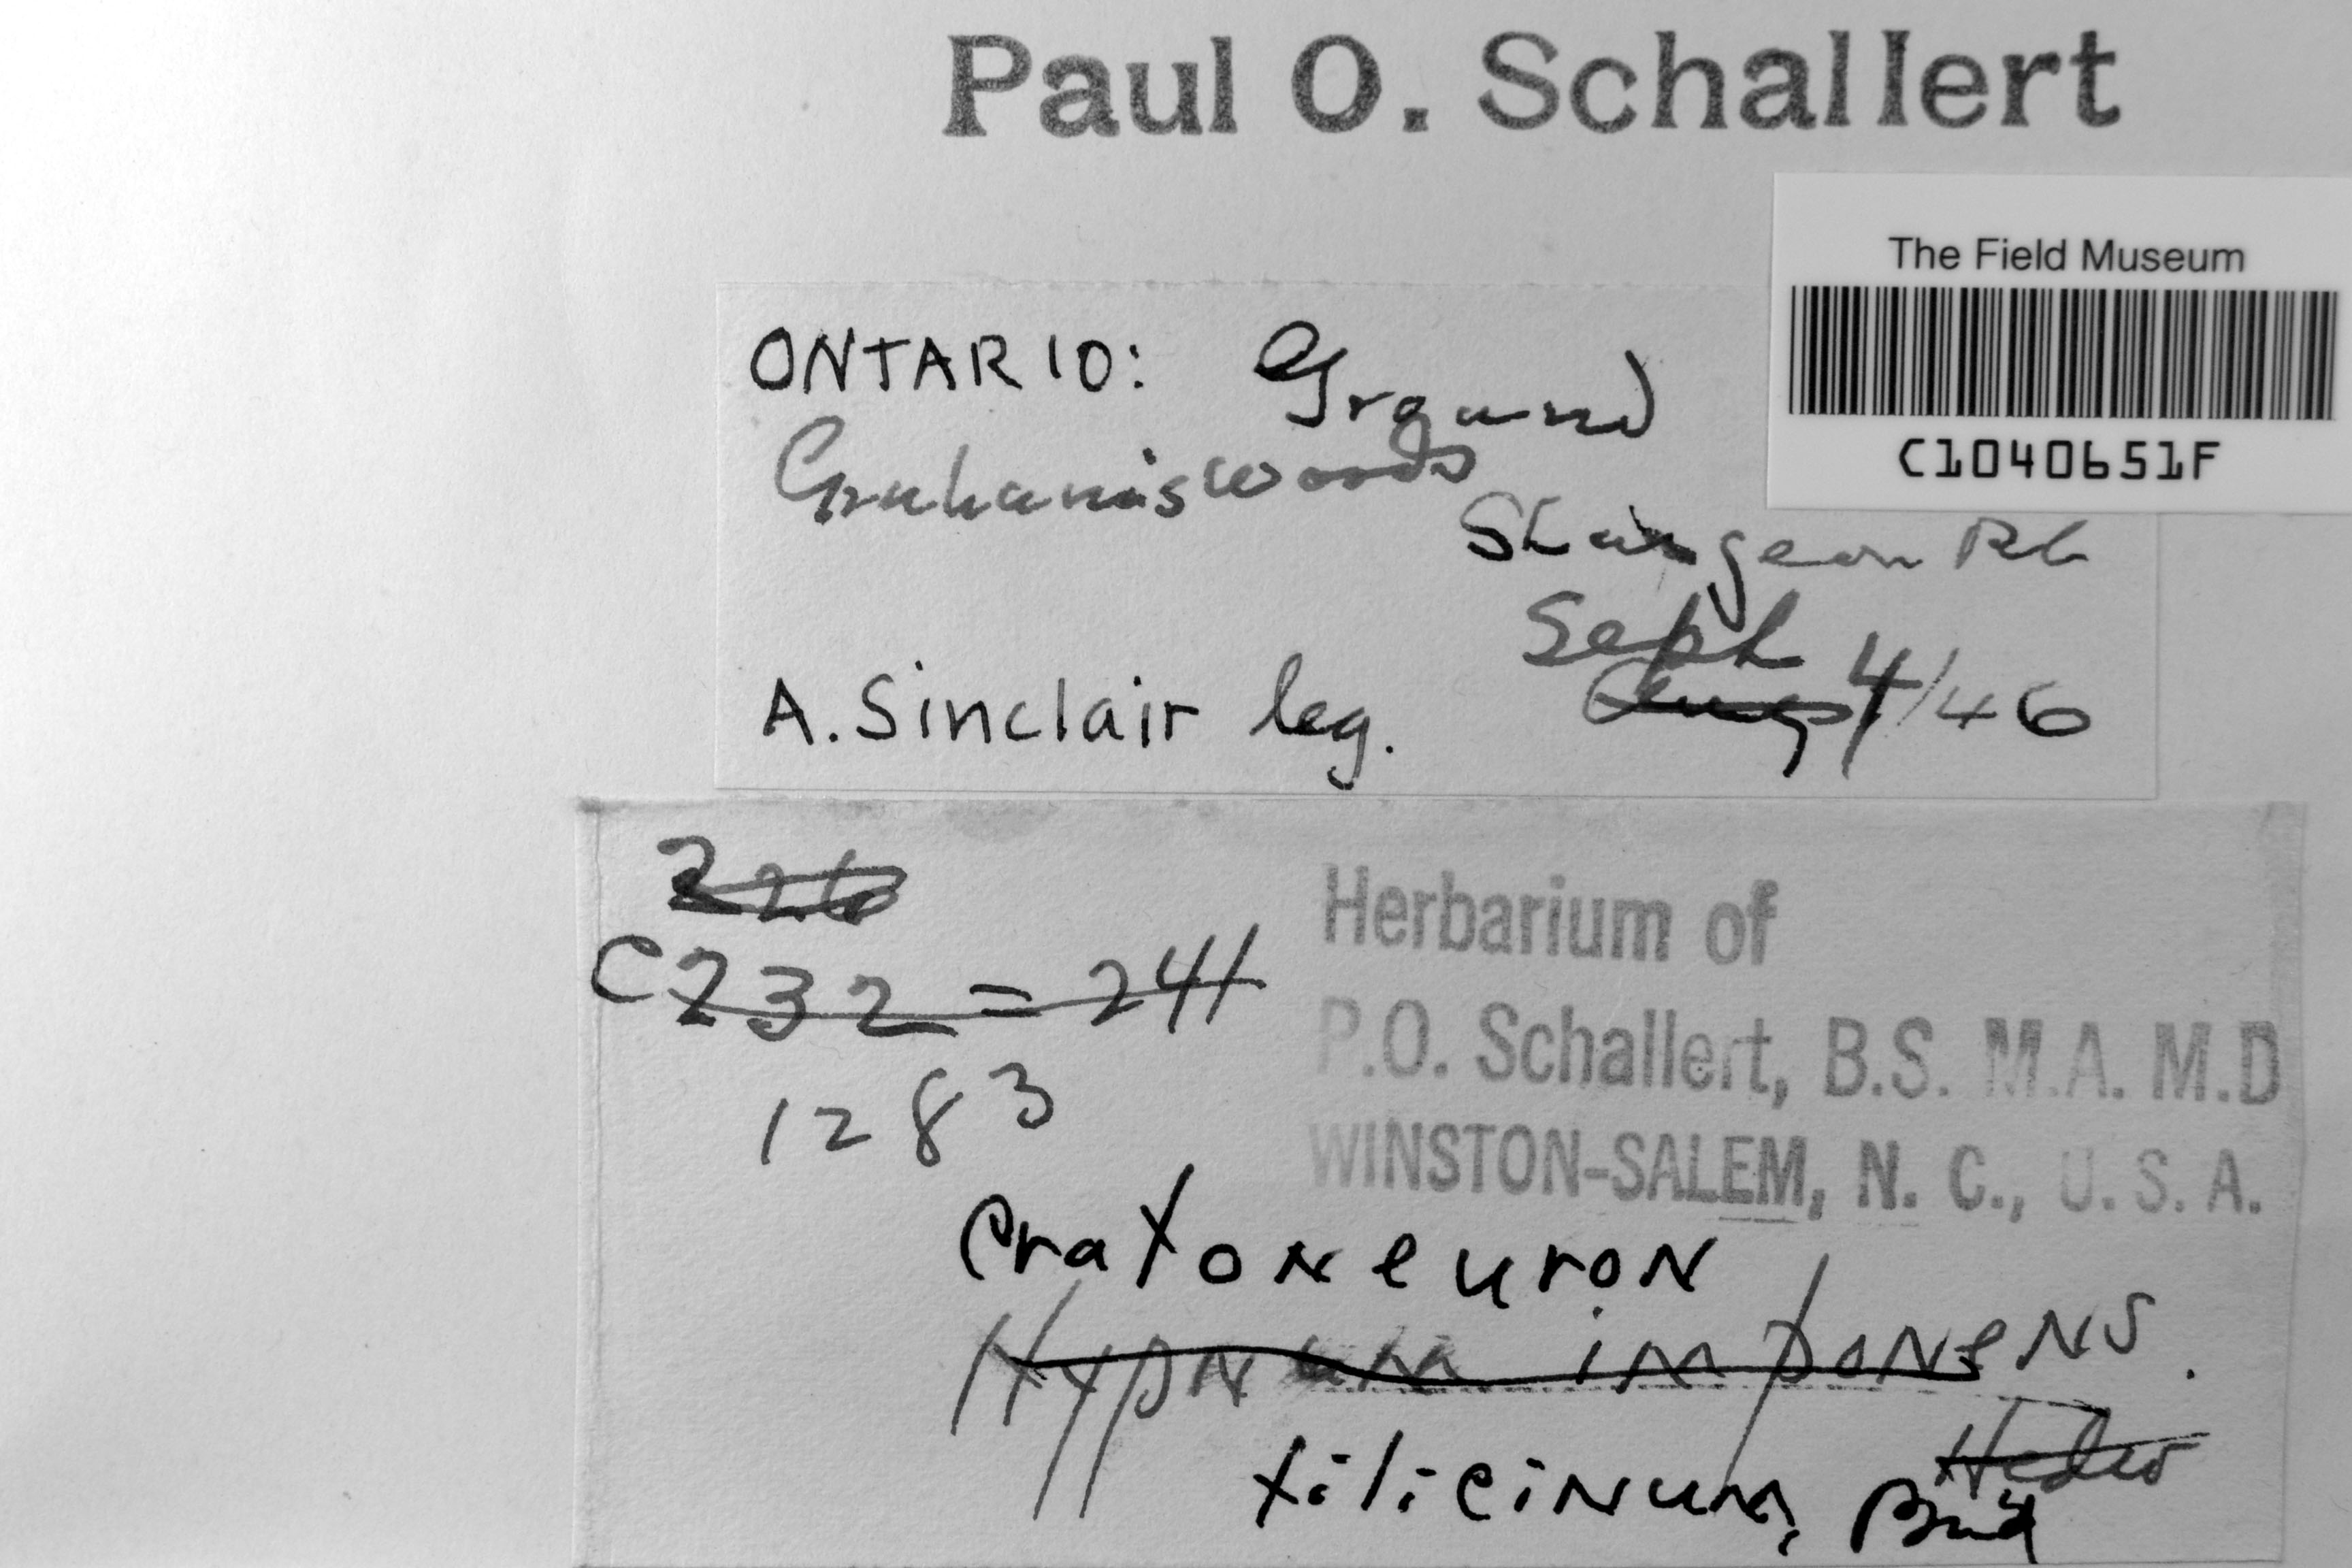 Paul O. Schallert
The Field Museum
C1040651F
ONTARIO: Ground
Grahamswoods
Sturgeon Rd
Sept
Aug 4/46
A. Sinclair leg.
226
C232 = 241
1283
Herbarium of
P.O. Schallert, B.S. M.A. M.D
WINSTON-SALEM, N. C., U. S. A.
Cratoneuron
Hypnum imponens.
Hedw
filicinum, Brid